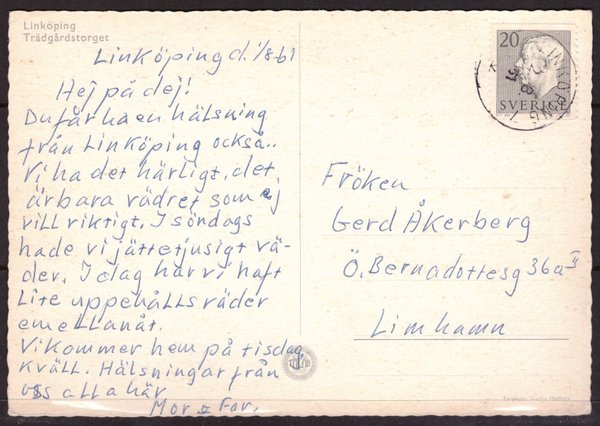 Linköping
Trädgårdstorget
Linköping d. 1/8-61
Hej på dej!
Du får ha en hälsning
från Linköping också..
Vi ha det härligt, det
är bara vädret som ej
vill riktigt. I söndags
hade vi jättetjusigt vä-
der. I dag har vi haft
lite uppehållsväder
emellanåt.
Vi kommer hem på tisdag
kväll. Hälsningar från
oss alla här
Mor & Far.
20
SVERIGE
LINKÖPING
Fröken
Gerd Åkerberg
Ö. Bernadottesg 36a II
Limhamn